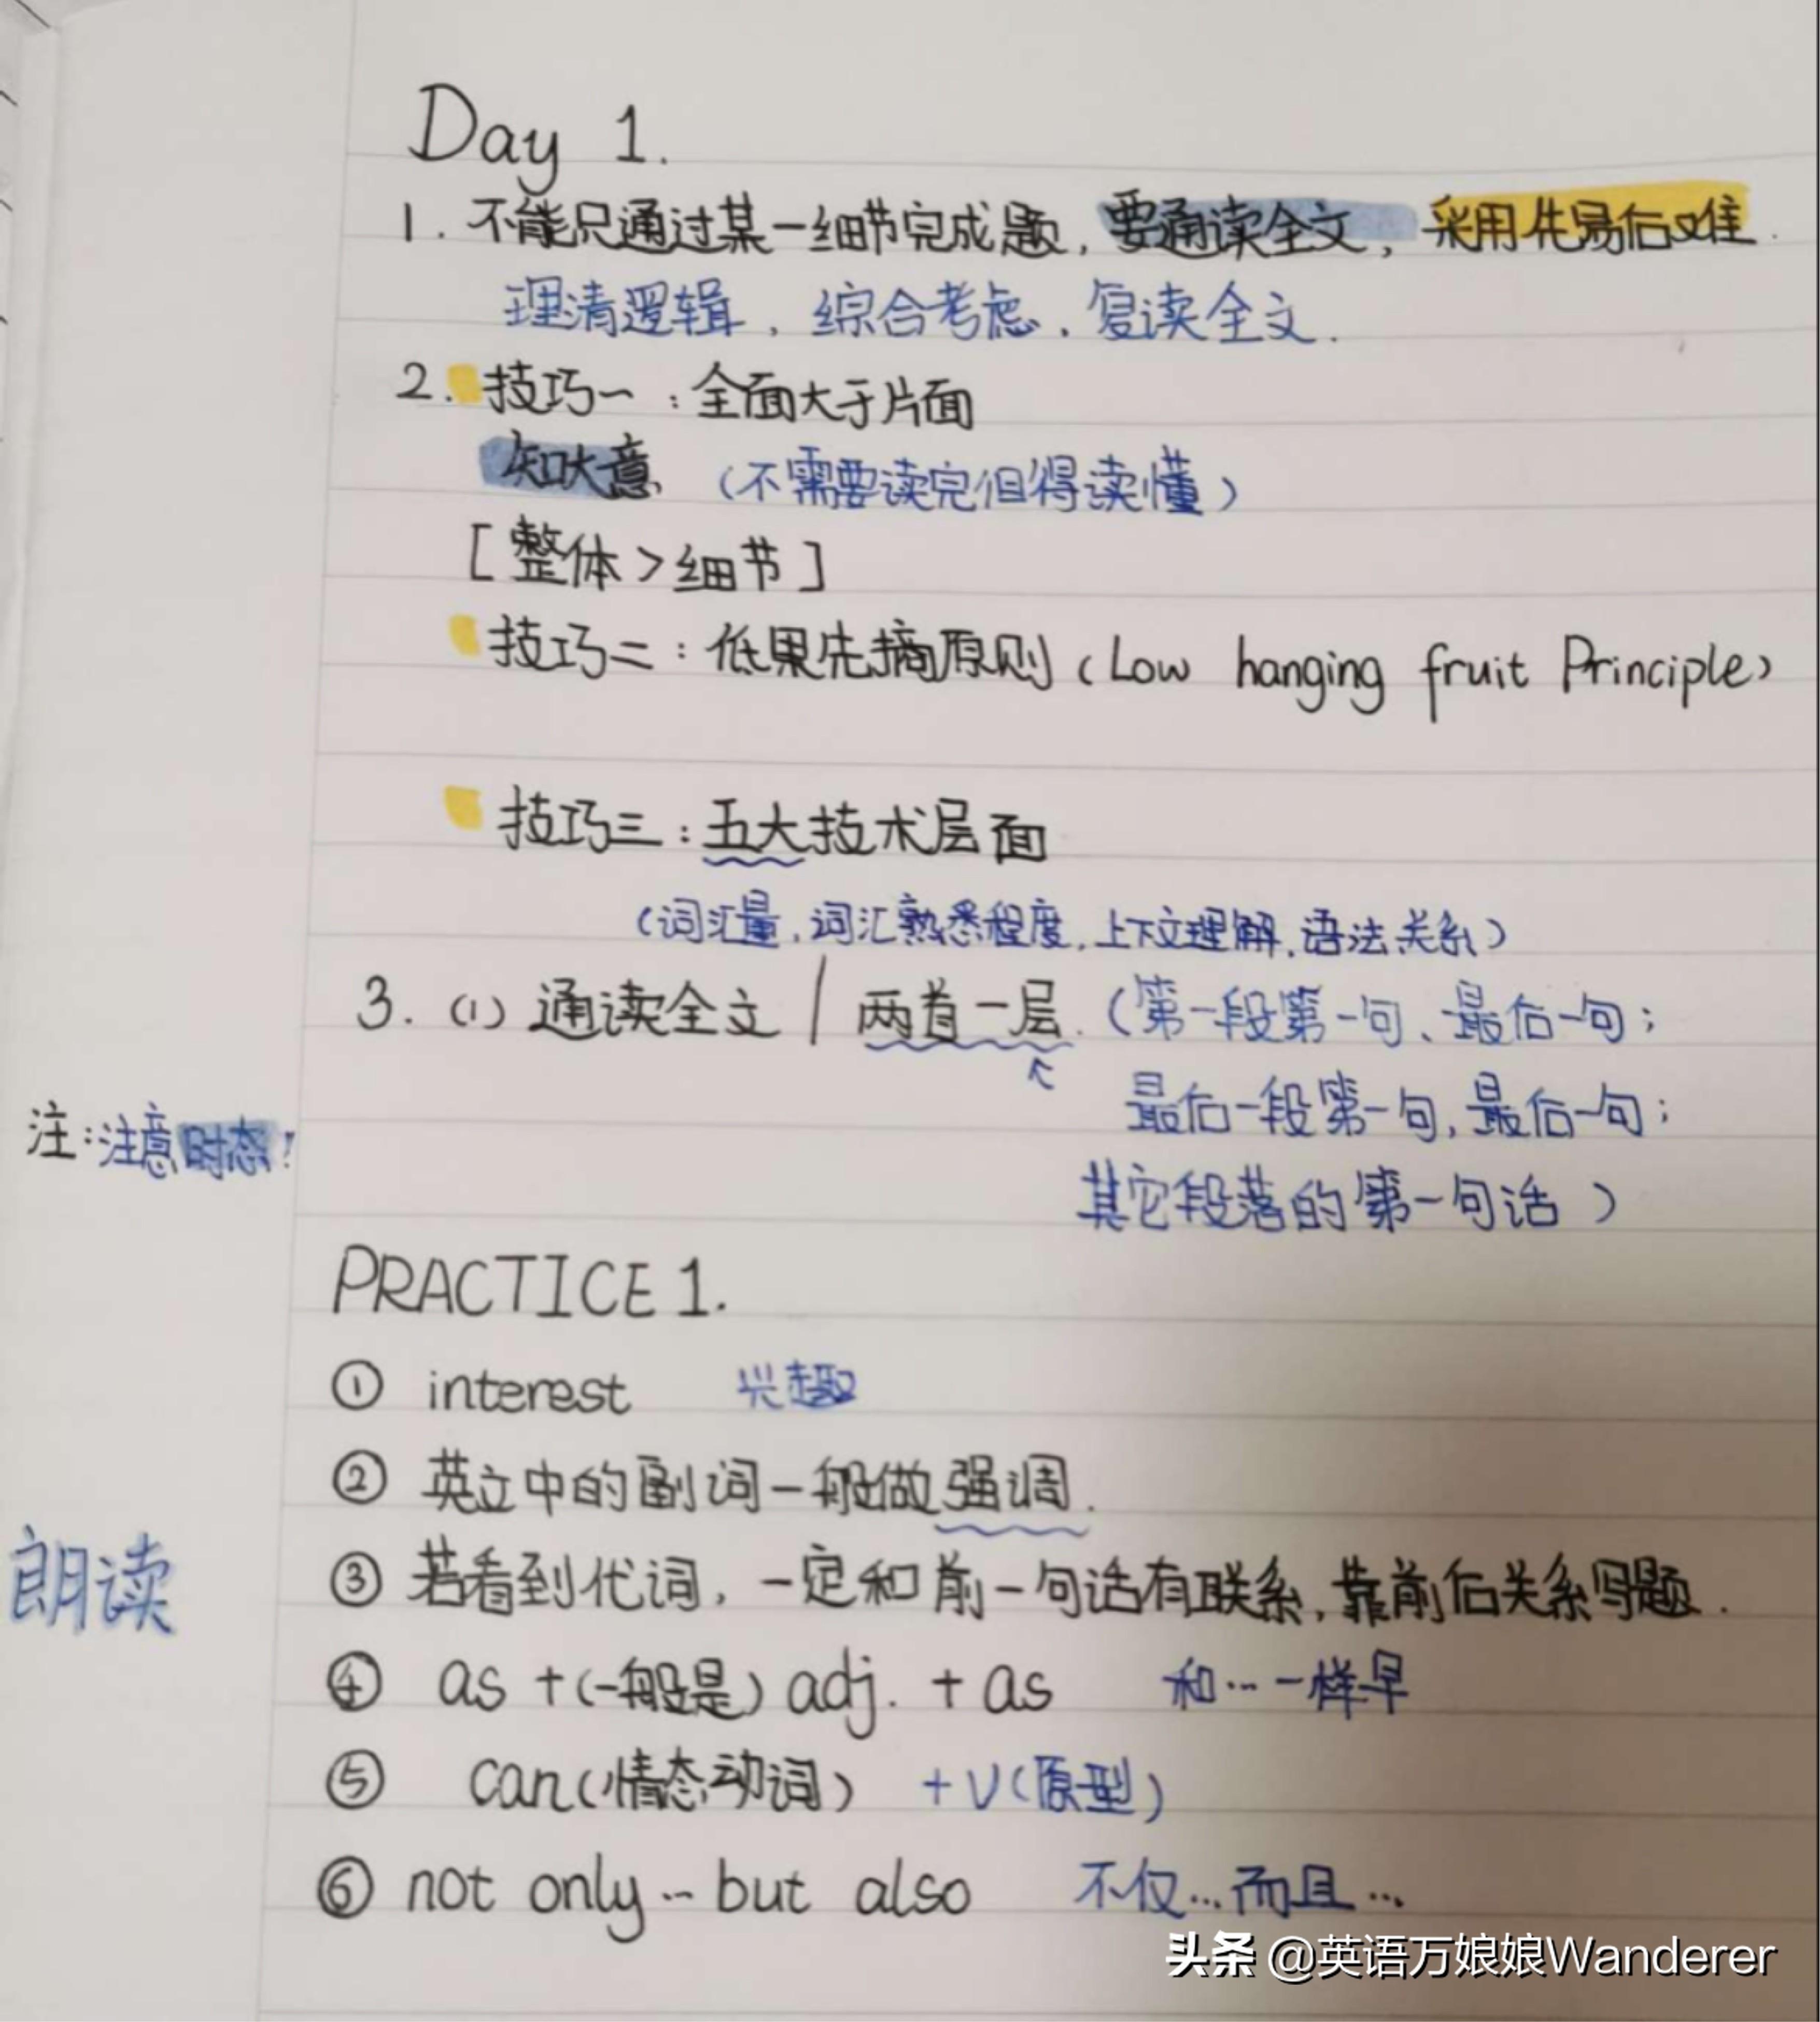 Day 1.
1. 不能只通过某一细节完成题,要通读全文,采用先易后难.
理清逻辑,综合考虑.复读全文.
2. 技巧一:全面大于片面
知大意 (不需要读完但得读懂)
[整体>细节]
技巧二:低果先摘原则(Low hanging fruit Principle)
技巧三:五大技术层面
(词汇量,词汇熟悉程度,上下文理解,语法关系)
3. (1) 通读全文 / 两首一层.(第一段第一句、最后一句;
最后一段第一句,最后一句;
注:注意时态!
其它段落的第一句话)
PRACTICE 1.
① interest 兴趣
② 英文中的副词一般做强调.
朗读
③ 若看到代词,一定和前一句话有联系,靠前后关系写题.
④ as +(一般是) adj. + as 和…一样早
⑤ can(情态动词) +V(原型)
⑥ not only … but also 不仅…而且…
头条 @英语万娘娘Wanderer